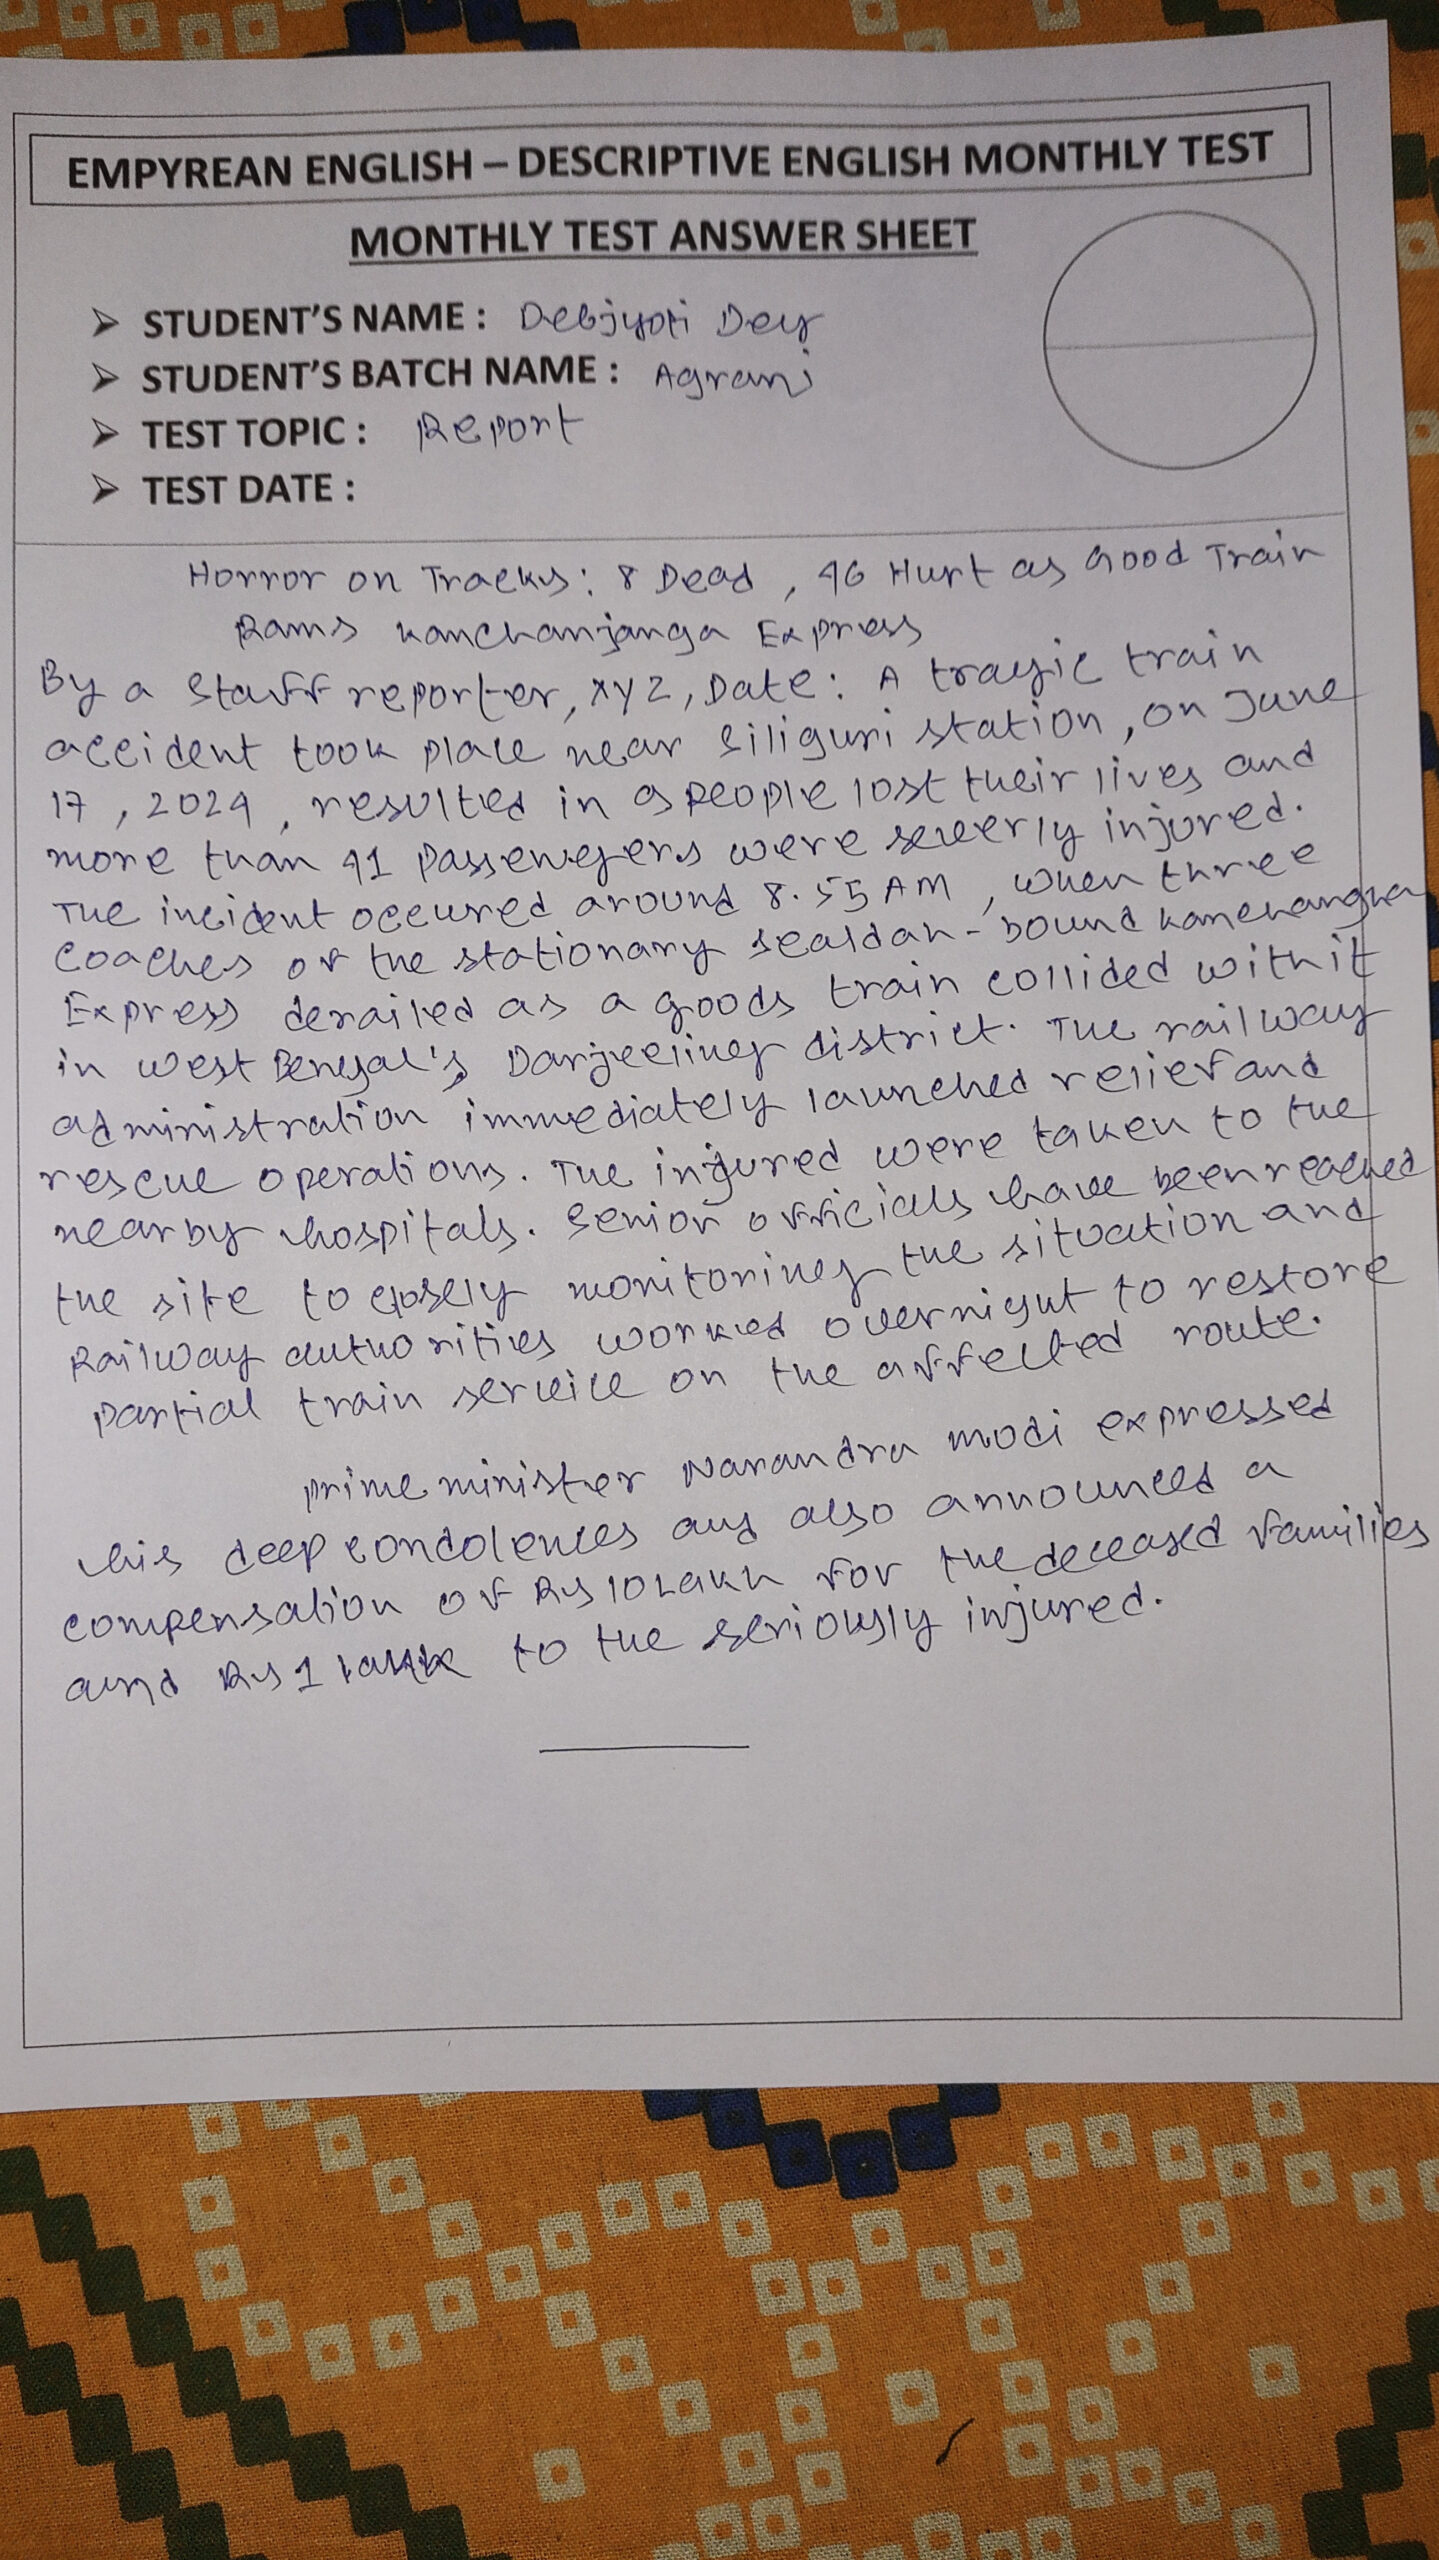 EMPYREAN ENGLISH – DESCRIPTIVE ENGLISH MONTHLY TEST
MONTHLY TEST ANSWER SHEET
➢ STUDENT'S NAME : Debjyoti Dey
➢ STUDENT'S BATCH NAME : Agrani
➢ TEST TOPIC : Report
➢ TEST DATE :
Horror on Tracks: 8 Dead, 46 Hurt as Good Train
Rams Kanchanjanga Express
By a Staff reporter, XYZ, Date: A tragic train
accident took place near Siliguri station, on June
17, 2024, resulted in 9 people lost their lives and
more than 41 passenegers were severly injured.
The incident occured around 8.55 AM, when three
coaches of the stationary Sealdah-bound Kanchangha
Express derailed as a goods train collided with it
in West Bengal's Darjeeling district. The railway
administration immediately launched relief and
rescue operations. The injured were taken to the
nearby hospitals. Senior officials have been reached
the site to closely monitoring the situation and
Railway authorities worked overnight to restore
partial train service on the affected route.
Prime minister Narandra modi expressed
his deep condolences and also announced a
compensation of Rs 10 Lakh for the deceased families
and Rs 1 lakh to the seriously injured.